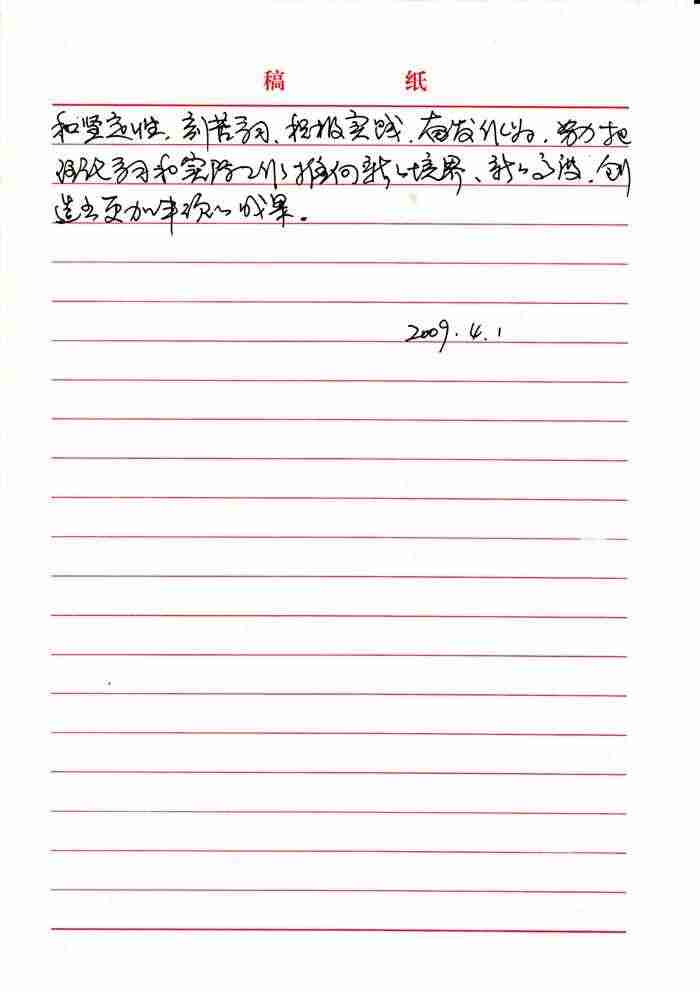 稿 纸
和坚定性,刻苦学习,积极实践,奋发作为,努力把
理论学习和实际工作推向新的境界、新的高度,创
造出更加丰硕的成果。
2009.4.1